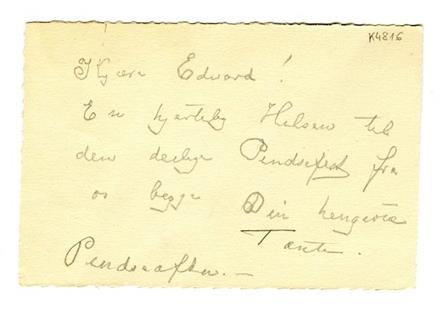 K4816
Kjære Edvard!
En hjertelig Hilsen til
den deilige Pindsefest fra
os begge Din hengivne
Tante.
Pindseaften. –